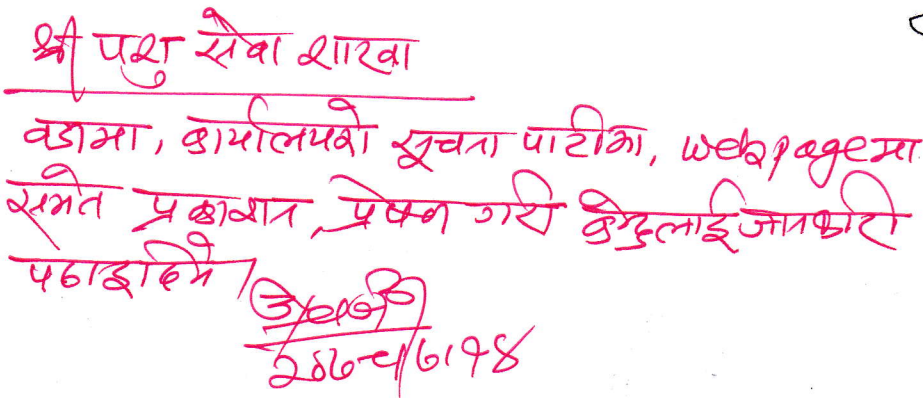 श्री पशु सेवा शाखा
वडामा, कार्यालयको सूचना पाटीमा, webpageमा
समेत प्रकाशन, प्रेषण गरी केन्द्रलाई जानकारी
पठाइदिने।